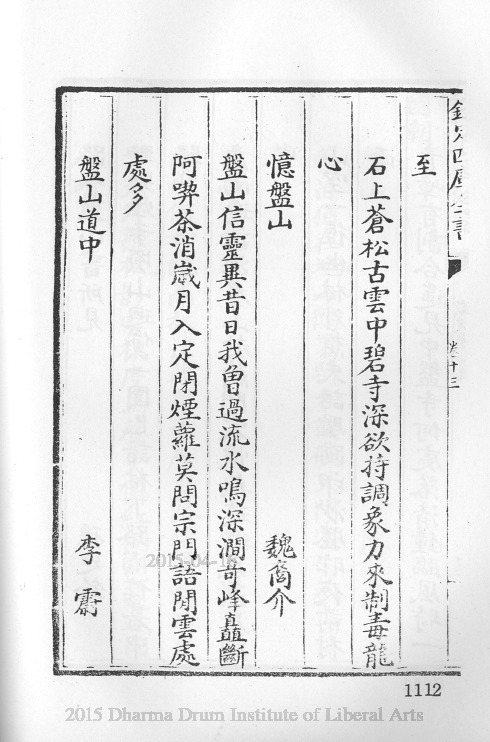 欽定四庫全書
卷十三
至
石上蒼松古雲中碧寺深欲持調象力來制毒龍
心
憶盤山 魏裔介
盤山信靈異昔日我曾過流水鳴深澗奇峰矗斷
阿喫茶消歲月入定閉煙蘿莫問宗門語閒雲處
處多
盤山道中 李霨
1112
2015 Dharma Drum Institute of Liberal Arts